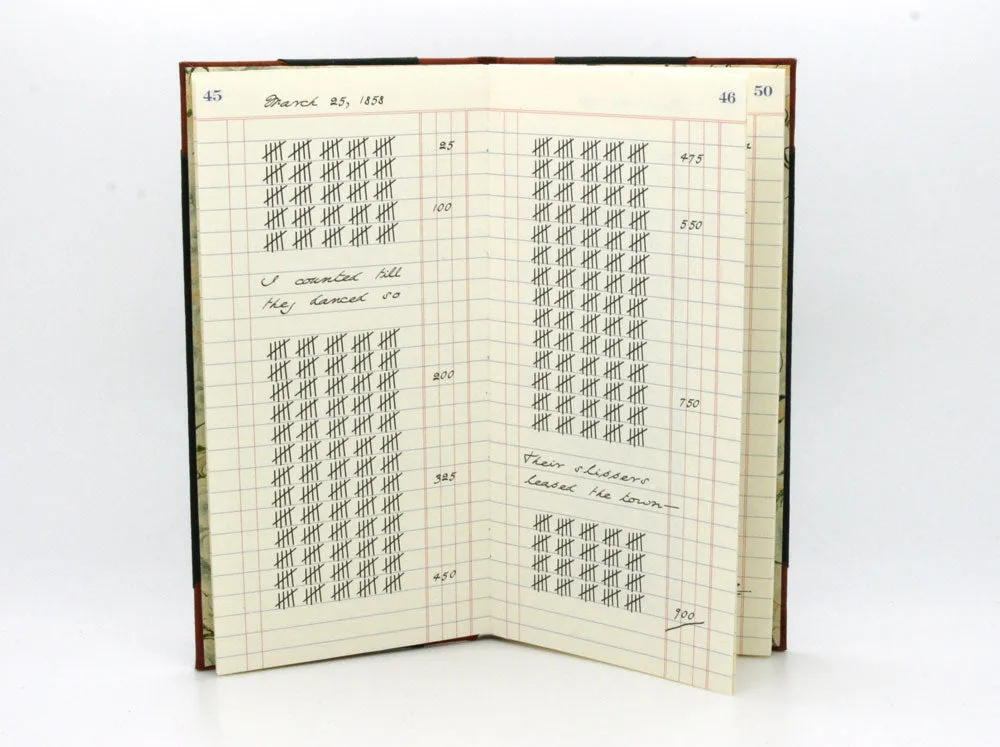 45
March 25, 1858
25
100
I counted till
they danced so
200
325
450
46
475
550
750
Their slippers
leaped the town—
900
50